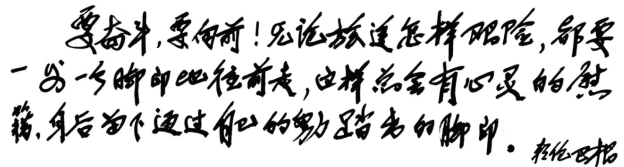 要奋斗,要向前!无论旅途怎样艰险,都要
一步一个脚印地往前走,这样总会有心灵的慰
籍,身后留下通过自己的努力踏出的脚印。